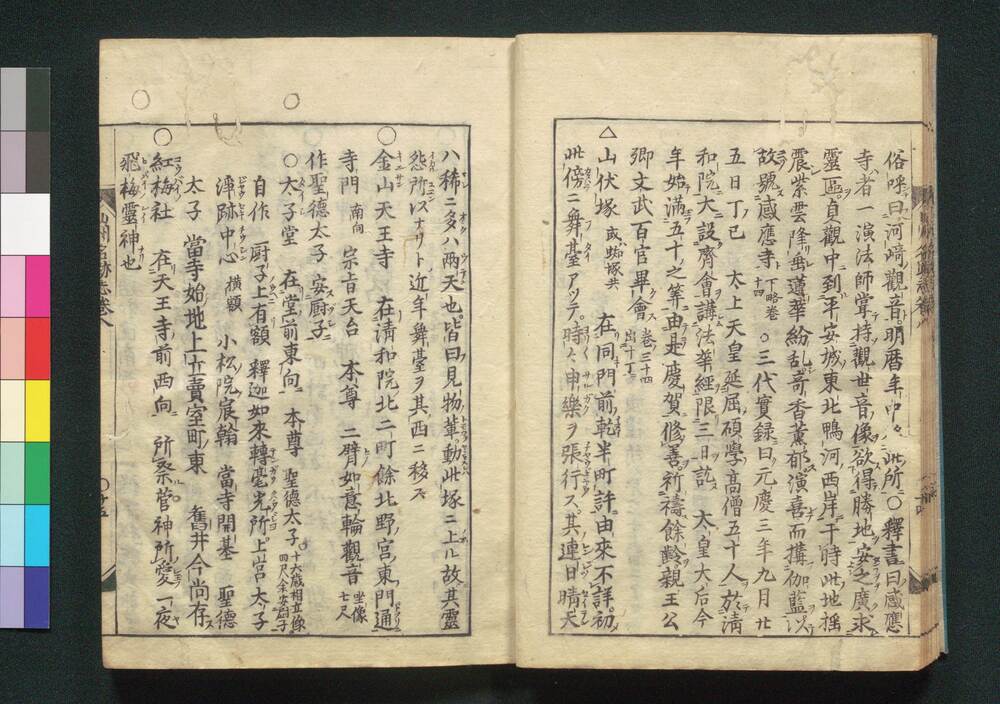 俗呼曰河﨑觀音明暦年中〻此所〇釋書曰感應
寺者一演法師甞持觀世音像欲得勝地安之廣求
靈區貞觀中到平安城東北鴨河西岸于時此地揺
震紫雲降垂蓮華紛乱竒香薫郁演喜而搆伽藍以
故號感應寺下略卷十四 〇三代實録曰元慶三年九月廿
五日丁巳 太上天皇延屈碩學髙僧五十人於清
和院大設齊會講法華經限三日訖 太皇大后今
年始滿五十之筭由是慶賀修善祈禱餘齡親王公
卿文武百官畢會卷三十四出十丁
△山伏塚或蜘塚共 在同門前乾半町許由來不詳初
此傍ニ舞臺アツテ時々申樂ヲ張行ス其連日晴天
ハ稀ニ多ハ雨天也皆曰見物輩動此塚ニ上ル故其靈
怨所スナリト近年舞臺ヲ其西ニ移ス
〇金山天王寺 在清和院北二町餘北野宮東門通
寺門南向 宗旨天台 本尊 二臂如意輪觀音坐像七尺
作聖德太子安厨子
〇太子堂 在堂前東向 本尊 聖德太子十六歳相立像四尺余安厨子
自作 厨子上有額 釋迦如來轉毫光所上宮太子
渾跡中心横額 小松院宸翰 當寺開基 聖德
太子 當寺始地上立賣室町東 舊井今尚存
〇紅梅社 在天王寺前西向 所祭菅神所愛一夜
飛梅靈神也
山州名跡志卷八
〇廿五